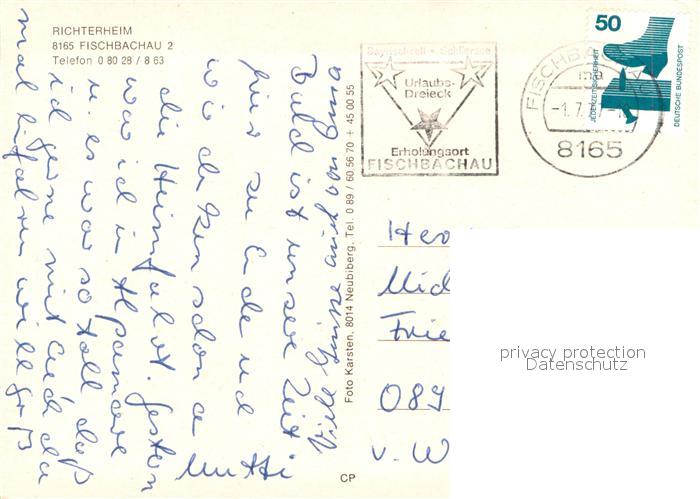 RICHTERHEIM
8165 FISCHBACHAU 2
Telefon 0 80 28 / 8 63
Viele Grüsse auch von Oma
Bald ist unsere Zeit
hier zu Ende und
wir denken schon an
die Heimfahrt. Gestern
war ich in
u. es war so toll daß
ich gerne mit Euch da
mal hinfahren will Gr. B
Mutti
Foto Karsten, 8014 Neubiberg, Tel. 0 89 / 60 56 70 + 45 00 55
CP
Bayrischzell • Schliersee
Urlaubs-
Dreieck
Erholungsort
FISCHBACHAU
FISCHBACHAU
ma
-1.7.
8165
50
JEDERZEIT SICHERHEIT
DEUTSCHE BUNDESPOST
Her
Mid
Frie
089
v. W
privacy protection
Datenschutz